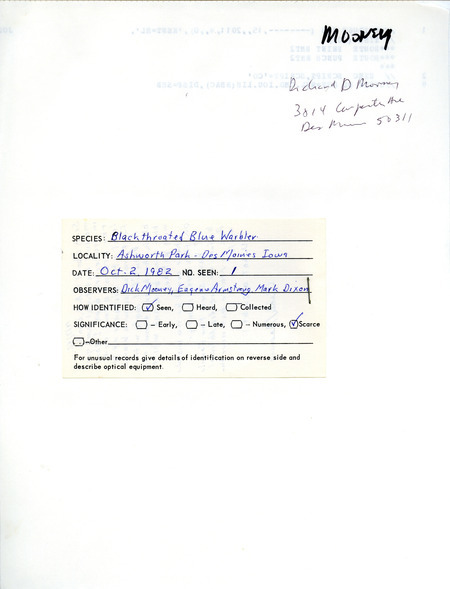 MOONEY
Richard D Mooney
3814 Carpenter Ave
Des Moines 50311
SPECIES: Blackthroated Blue Warbler
LOCALITY: Ashworth Park - Des Moines Iowa
DATE: Oct. 2 1982 NO. SEEN: 1
OBSERVERS: Dick Mooney, Eugene Armstrong, Mark Dixon
HOW IDENTIFIED: Seen, Heard, Collected
SIGNIFICANCE: – Early, – Late, – Numerous, Scarce
–Other
For unusual records give details of identification on reverse side and
describe optical equipment.